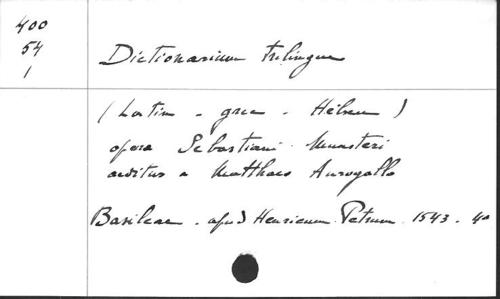 400
54
1
Dictionarium trilingue
(Latin - grec - Hébreu)
opera Sebastiani Munsteri
aeditus a Matthaeo Aurogallo
Basileae - apud Henricum Petrum. 1543. 40